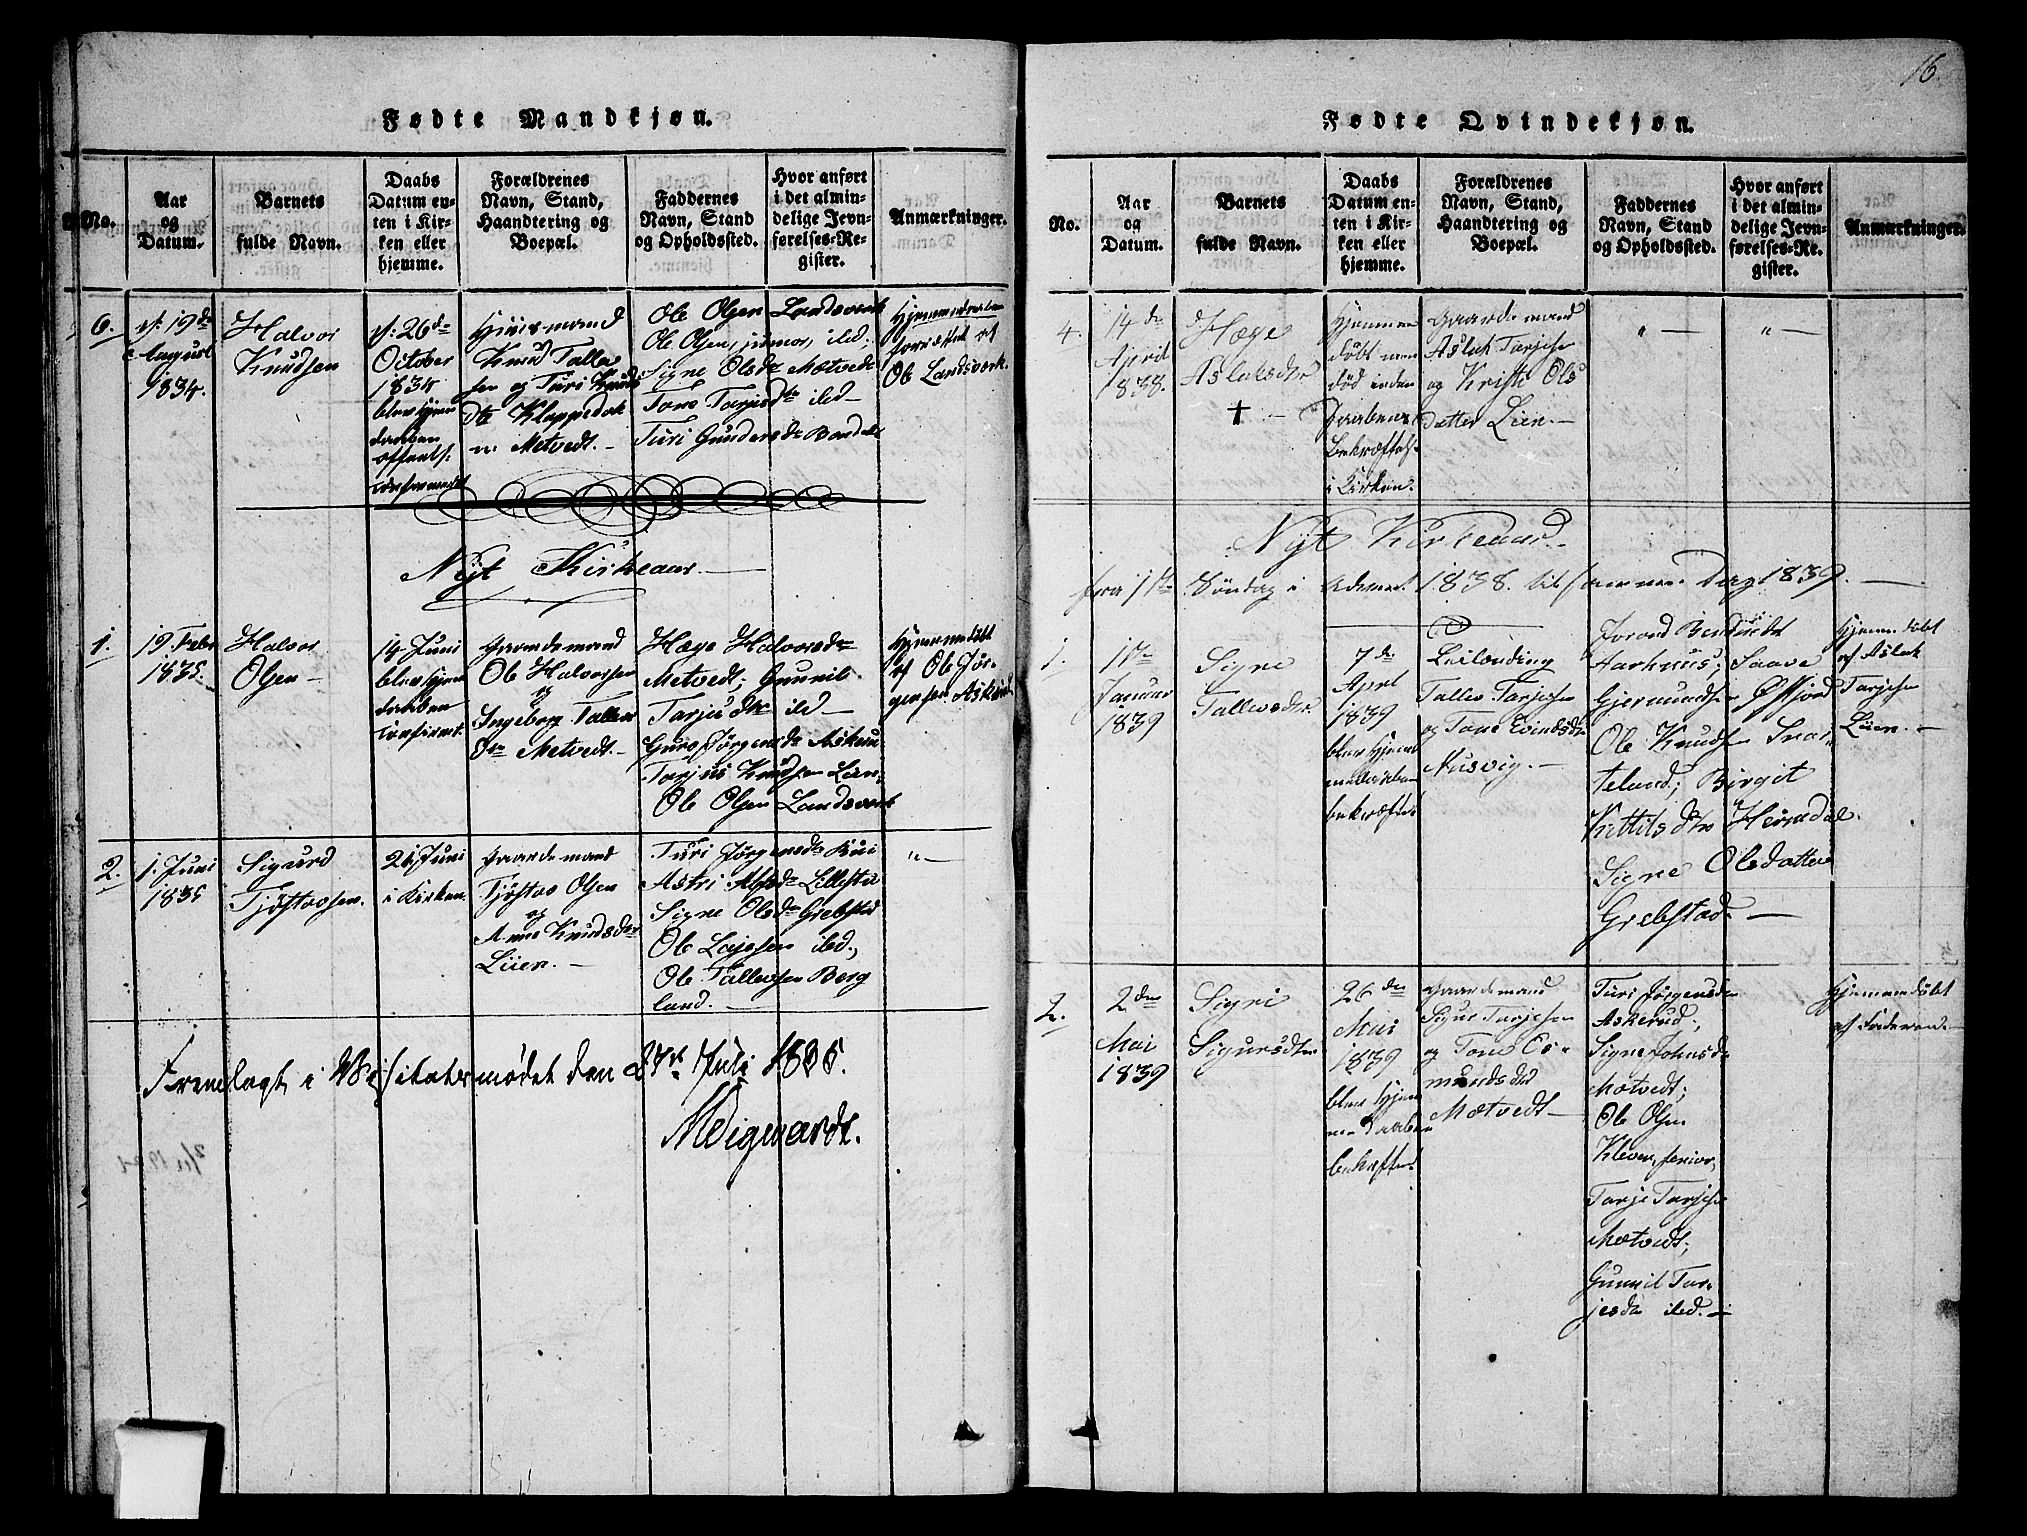 Fødte Mandkjøn.
No.
Aar og Datum.
Barnets fulde Navn.
Daabs Datum enten i Kirken eller hjemme.
Forældrenes Navn, Stand, Haandtering og Boepæl.
Faddernes Navn, Stand og Opholdssted.
Hvor anført i det almindelige Jevnførelses-Register.
Anmærkninger.
6.
d: 19de
August
1834.
Halvor
Knudsen
d: 26de
October
1834
blev hjem
daaben
offentl:
confirmeret
Huusmand
Knud Talle
sen og Turi Knuds
dtr Kloppedok
Metvedt.
Ole Olsen Landsverk
Ole Olsen, junior, ibid;
Signe Olsdr Mætvedt
Tone Tarjusdtr ibid
Turi Gundersdr Bondal
Hjemmedaaben
forrettet af
Ole Landsverk.
Nyt Kirkeaar
1.
19. Febr
1835.
Halvor
Olsen
14 Juni
blev hjem
daaben
confirmt.
Gaardemand
Ole Halvorsen
og
Ingeborg Tallev
dtr Metvedt.
Hæge Halvorsdtr
Metvedt; Gunnil
Tarjusdtr ibid
Guro Jørgensdr Askerud
Tarjus Knudsen Lien
Ole Olsen Landsverk
Hjemmedøbt
af Ole Jør-
gensen Askerud
2.
1. Juni
1835
Sigurd
Tjøstovsen.
21 Juni
i Kirken
Gaardemand
Tjøstov Olsen
og
Anne Knudsdtr
Lien.
Turi Jørgensdr Bui
Astri Alfsdr Lillestu
Signe Olsdr Grebstad
Ole ibid,
Ole Tallevsen Berg
land.
" —
Fremlagt i Visitatsmødet den 27de Juli 1835.
16.
Fødte Qvindekjøn.
No.
Aar og Datum.
Barnets fulde Navn.
Daabs Datum enten i Kirken eller hjemme.
Forældrenes Navn, Stand, Haandtering og Boepæl.
Faddernes Navn, Stand og Opholdssted.
Hvor anført i det almindelige Jevnførelses-Register.
Anmærkninger.
4.
14de
April
1838.
Hæge
Aslaksdtr
†
Hjemme
døbt men
død inden
Daabens
Bekræftels
i Kirken.
Gaardemand
Aslak Tarjesen
og Kristi Ols
datter Lien.
" —
" —
Nyt Kirkeaar
fra 1ste Søndag i Advent 1838 til samme Dag 1839.
1.
1ste
Januar
1839
Signe
Tallevsdtr
7de
April
1839
blev hjem
medaaben
bekræftet
Leilænding
Tallev Tarjesen
og Tone Evindsdtr
Ausvig.
Jorand Bendixdtr
Aarhuus; Saave
Gjermundsen Øfstjord
Ole Knudsen Svar-
teland; Birgit
Kittilsdtr Heimdal.
Signe Olsdatter
Grebstad
Hjemmedøbt
af Aslak
Tarjesen
Lien.
2.
2den
Mai
1839
Sigri
Sigursdtr
26de
Mai
1839
blev hjem
me Daaben
bekræftet
Gaardemand
Sigur Tarjesen
og Tone Es-
mundsdtr
Mætvedt
Turi Jørgensdr
Askerud;
Signe Johnsdr
Mætvedt;
Ole Olsen
Klever, senior,
Tarje Tarjesen
Mætvedt;
Gunnil Tar-
jesdr ibid.
Hjemmedøbt
af Faderen.